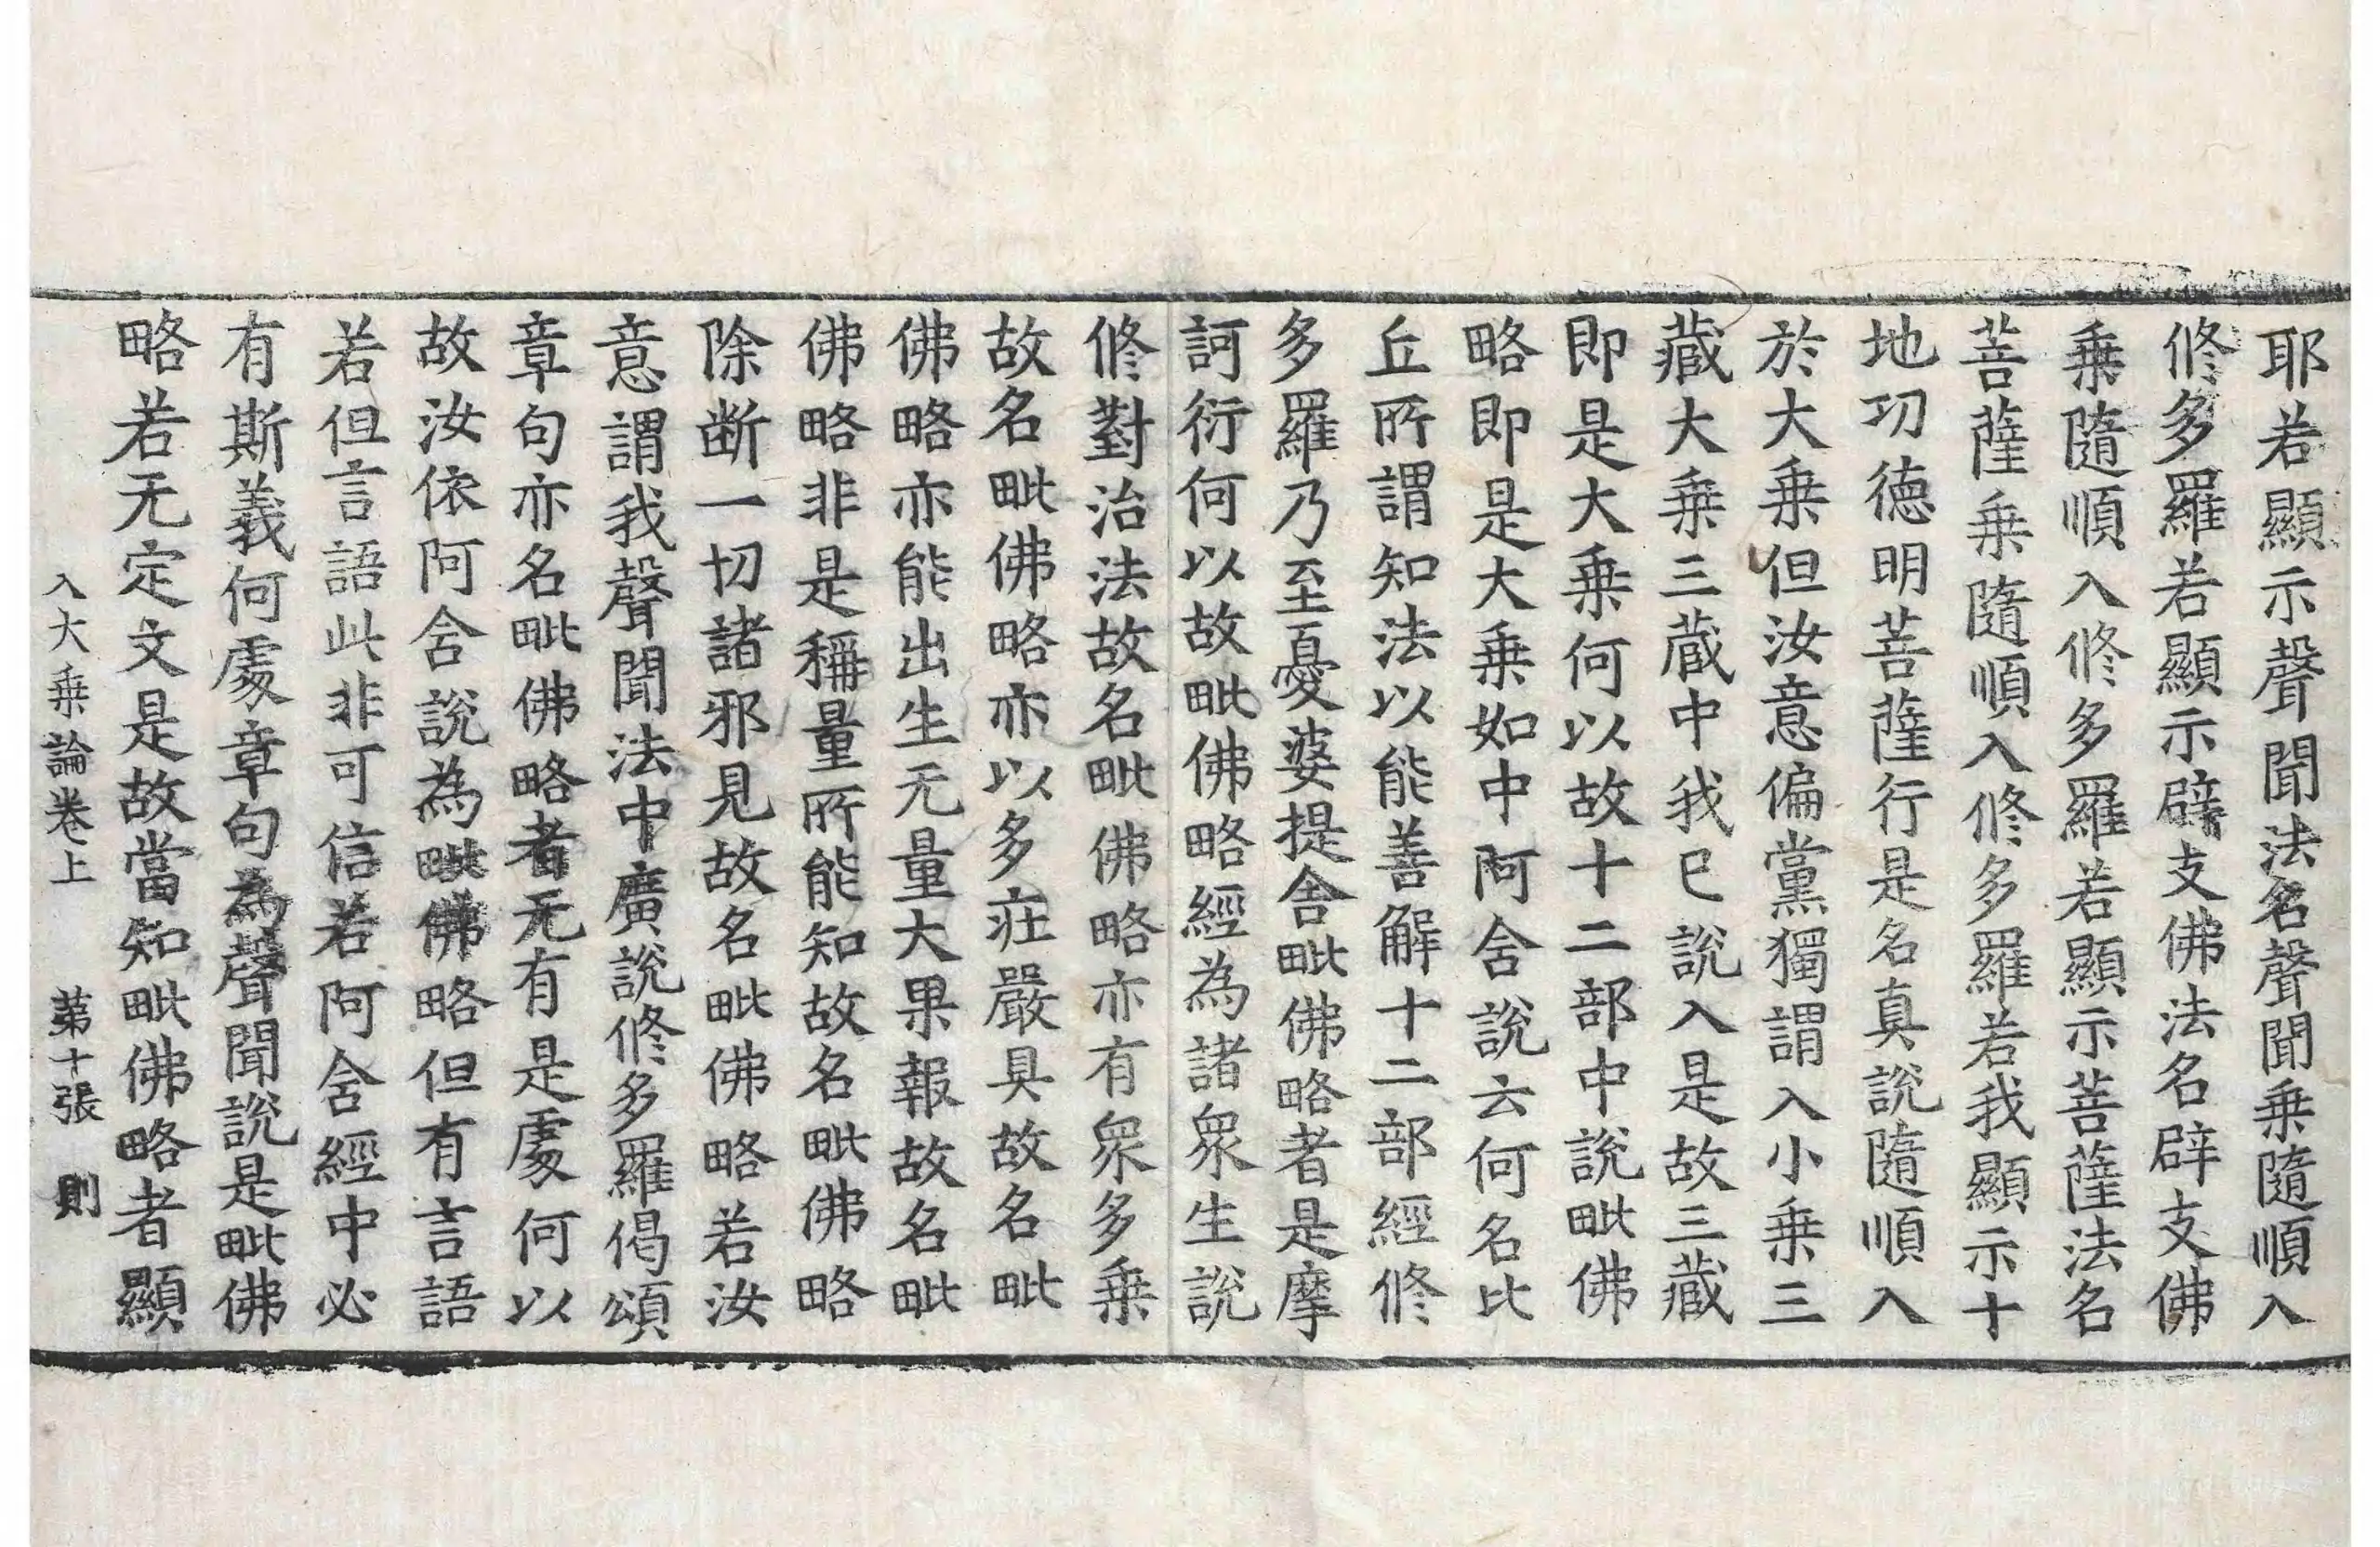 耶若顯示聲聞法名聲聞乗隨順入
修多羅若顯示辟支佛法名辟支佛
乗隨順入修多羅若顯示菩薩法名
菩薩乗隨順入修多羅若我顯示十
地功德明菩薩行是名真說隨順入
於大乗但汝意偏黨獨謂入小乗三
藏大乗三藏中我已說入是故三藏
即是大乗何以故十二部中說毗佛
略即是大乗如中阿含說云何名比
丘所謂知法以能善解十二部經修
多羅乃至憂婆提舍毗佛略者是摩
訶衍何以故毗佛略經為諸衆生說
修對治法故名毗佛略亦有衆多乗
故名毗佛略亦以多莊嚴具故名毗
佛略亦能出生无量大果報故名毗
佛略非是稱量所能知故名毗佛略
除断一切諸邪見故名毗佛略若汝
意謂我聲聞法中廣說修多羅偈頌
章句亦名毗佛略者无有是處何以
故汝依阿含說為毗佛略但有言語
若但言語此非可信若阿含經中必
有斯義何處章句為聲聞說是毗佛
略若无定文是故當知毗佛略者顯
入大乗論卷上　第十張　則